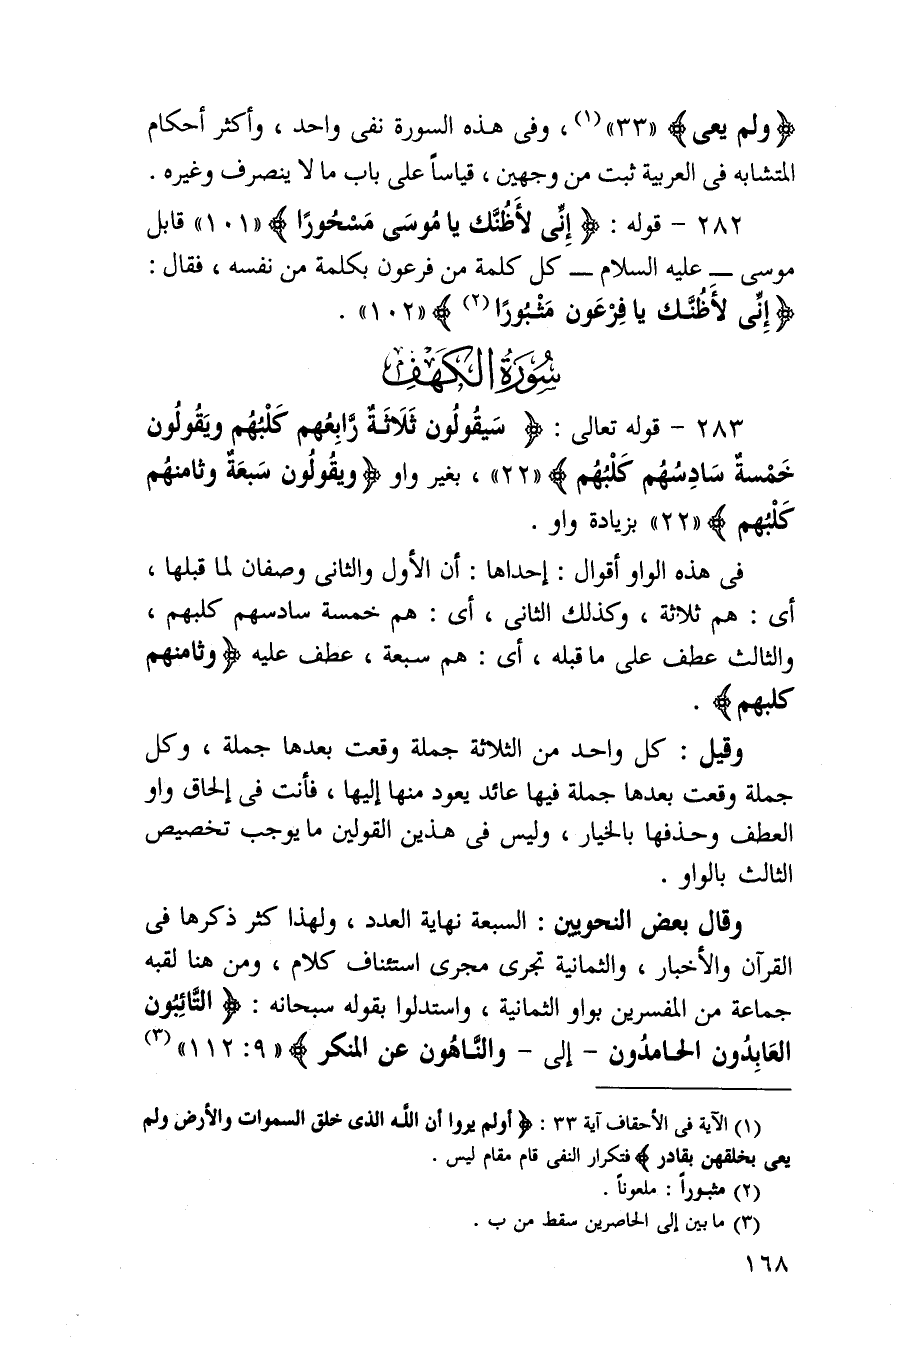 ﴿ولم يعى﴾ «٣٣»(١)، وفى هذه السورة نفى واحد ، وأكثر أحكام
المتشابه فى العربية ثبت من وجهين ، قياساً على باب ما لا ينصرف وغيره .
٢٨٢ - قوله : ﴿ إِنِّى لأَظُنَّك يا مُوسَى مَسْحُورًا ﴾ «١٠١» قابل
موسى ــ عليه السلام ــ كل كلمة من فرعون بكلمة من نفسه ، فقال :
﴿إِنِّى لأَظُنَّك يا فِرْعَون مَثْبُورًا(٢) ﴾ «١٠٢» .
سُورَةُ الكَهْفِ
٢٨٣ - قوله تعالى : ﴿ سَيقُولُون ثَلَاثَةٌ رَّابِعُهم كَلْبُهُم ويَقُولُون
خَمْسةٌ سَادِسُهُم كَلْبُهُم ﴾ «٢٢» ، بغير واو ﴿ويقُولُون سَبعَةٌ وثامنهُم
كَلْبُهم ﴾ «٢٢» بزيادة واو .
فى هذه الواو أقوال : إحداها : أن الأول والثانى وصفان لما قبلها ،
أى : هم ثلاثة ، وكذلك الثانى ، أى : هم خمسة سادسهم كلبهم ،
والثالث عطف على ما قبله ، أى : هم سبعة ، عطف عليه ﴿وثامنهم
كلبهم﴾ .
وقيل : كل واحد من الثلاثة جملة وقعت بعدها جملة ، وكل
جملة وقعت بعدها جملة فيها عائد يعود منها إليها ، فأنت فى إلحاق واو
العطف وحذفها بالخيار ، وليس فى هذين القولين ما يوجب تخصيص
الثالث بالواو .
وقال بعض النحويين : السبعة نهاية العدد ، ولهذا كثر ذكرها فى
القرآن والأخبار ، والثمانية تجرى مجرى استئناف كلام ، ومن هنا لقبه
جماعة من المفسرين بواو الثمانية ، واستدلوا بقوله سبحانه : ﴿ التَّائِبُون
العَابِدُون الحامدُون - إلى - والنَّاهُون عن المنكر ﴾ «٩ : ١١٢»(٣)
(١) الآية فى الأحقاف آية ٣٣ : ﴿ أولم يروا أن اللَّه الذى خلق السموات والأرض ولم
يعى بخلقهن بقادر ﴾ فتكرار النفى قام مقام ليس .
(٢) مثبوراً : ملعوناً .
(٣) ما بين إلى الحاصرين سقط من ب .
١٦٨